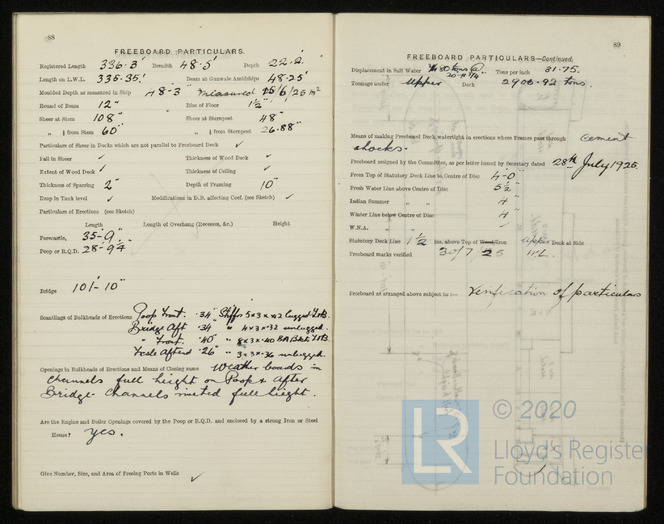 88
FREEBOARD PARTICULARS.
Registered Length 336.3' Breadth 48.5' Depth 22.2.
Length on L.W.L. 335.35.' Beam at Gunwale Amidships 48.25'
Moulded Depth as measured in Ship measured 15/6/25
Round of Beam 12" Rise of Floor 1½"
Sheer at Stem 108" Sheer at Sternpost 48"
" ⅛ from Stem 60" " ⅛ from Sternpost 26.88"
Particulars of Sheer in Docks which are not parallel to Freeboard Deck ✓
Fall in Sheer ✓ Thickness of Wood Deck ✓
Extent of Wood Deck ✓ Thickness of Ceiling ✓
Thickness of Sparring 2" Depth of Framing 10"
Drop in Tank level ✓ Modifications in D.B. affecting Coef. (see Sketch) ✓
Particulars of Erections (see Sketch)
Length Length of Overhang (Recesses, &c.) Height
Forecastle, 35-9"
Poop or R.Q.D. 28-9¼"
Bridge 101'-10"
Scantlings of Bulkheads of Erections Poop Front .34" Stiffs 5×3×.42 lugged T&B.
Bridge Aft .34 " 4×3×.32 unlugged.
" Front .40" " 8×3×.40 BA Bkts T&B.
Fcsle Aftend .26" " 3×3×.36 unlugged.
Openings in Bulkheads of Erections and Means of Closing same Weather boards in
channels full height on Poop & After
Bridge channels riveted full height.
Are the Engine and Boiler Openings covered by the Poop or R.Q.D. and enclosed by a strong Iron or Steel
House? yes.
Give Number, Size, and Area of Freeing Ports in Wells ✓
89
FREEBOARD PARTICULARS—Continued.
Displacement in Salt Water Tons per inch 31.75.
Tonnage under Upper Deck 2906.92 tons.
Means of making Freeboard Deck watertight in erections where Frames pass through cement
chocks.
Freeboard assigned by the Committee, as per letter issued by Secretary dated 28th July 1925.
From Top of Statutory Deck Line to Centre of Disc 4-0
Fresh Water Line above Centre of Disc 5½"
Indian Summer " " 4"
Winter Line below Centre of Disc 4"
W.N.A. " " ✓
Statutory Deck Line 1½ ins. above Top of Wood/Iron Upper Deck at Side
Freeboard marks verified 30/7/25
Freeboard as arranged above subject to:— Verification of particulars
LR
© 2020
Lloyd's Register
Foundation